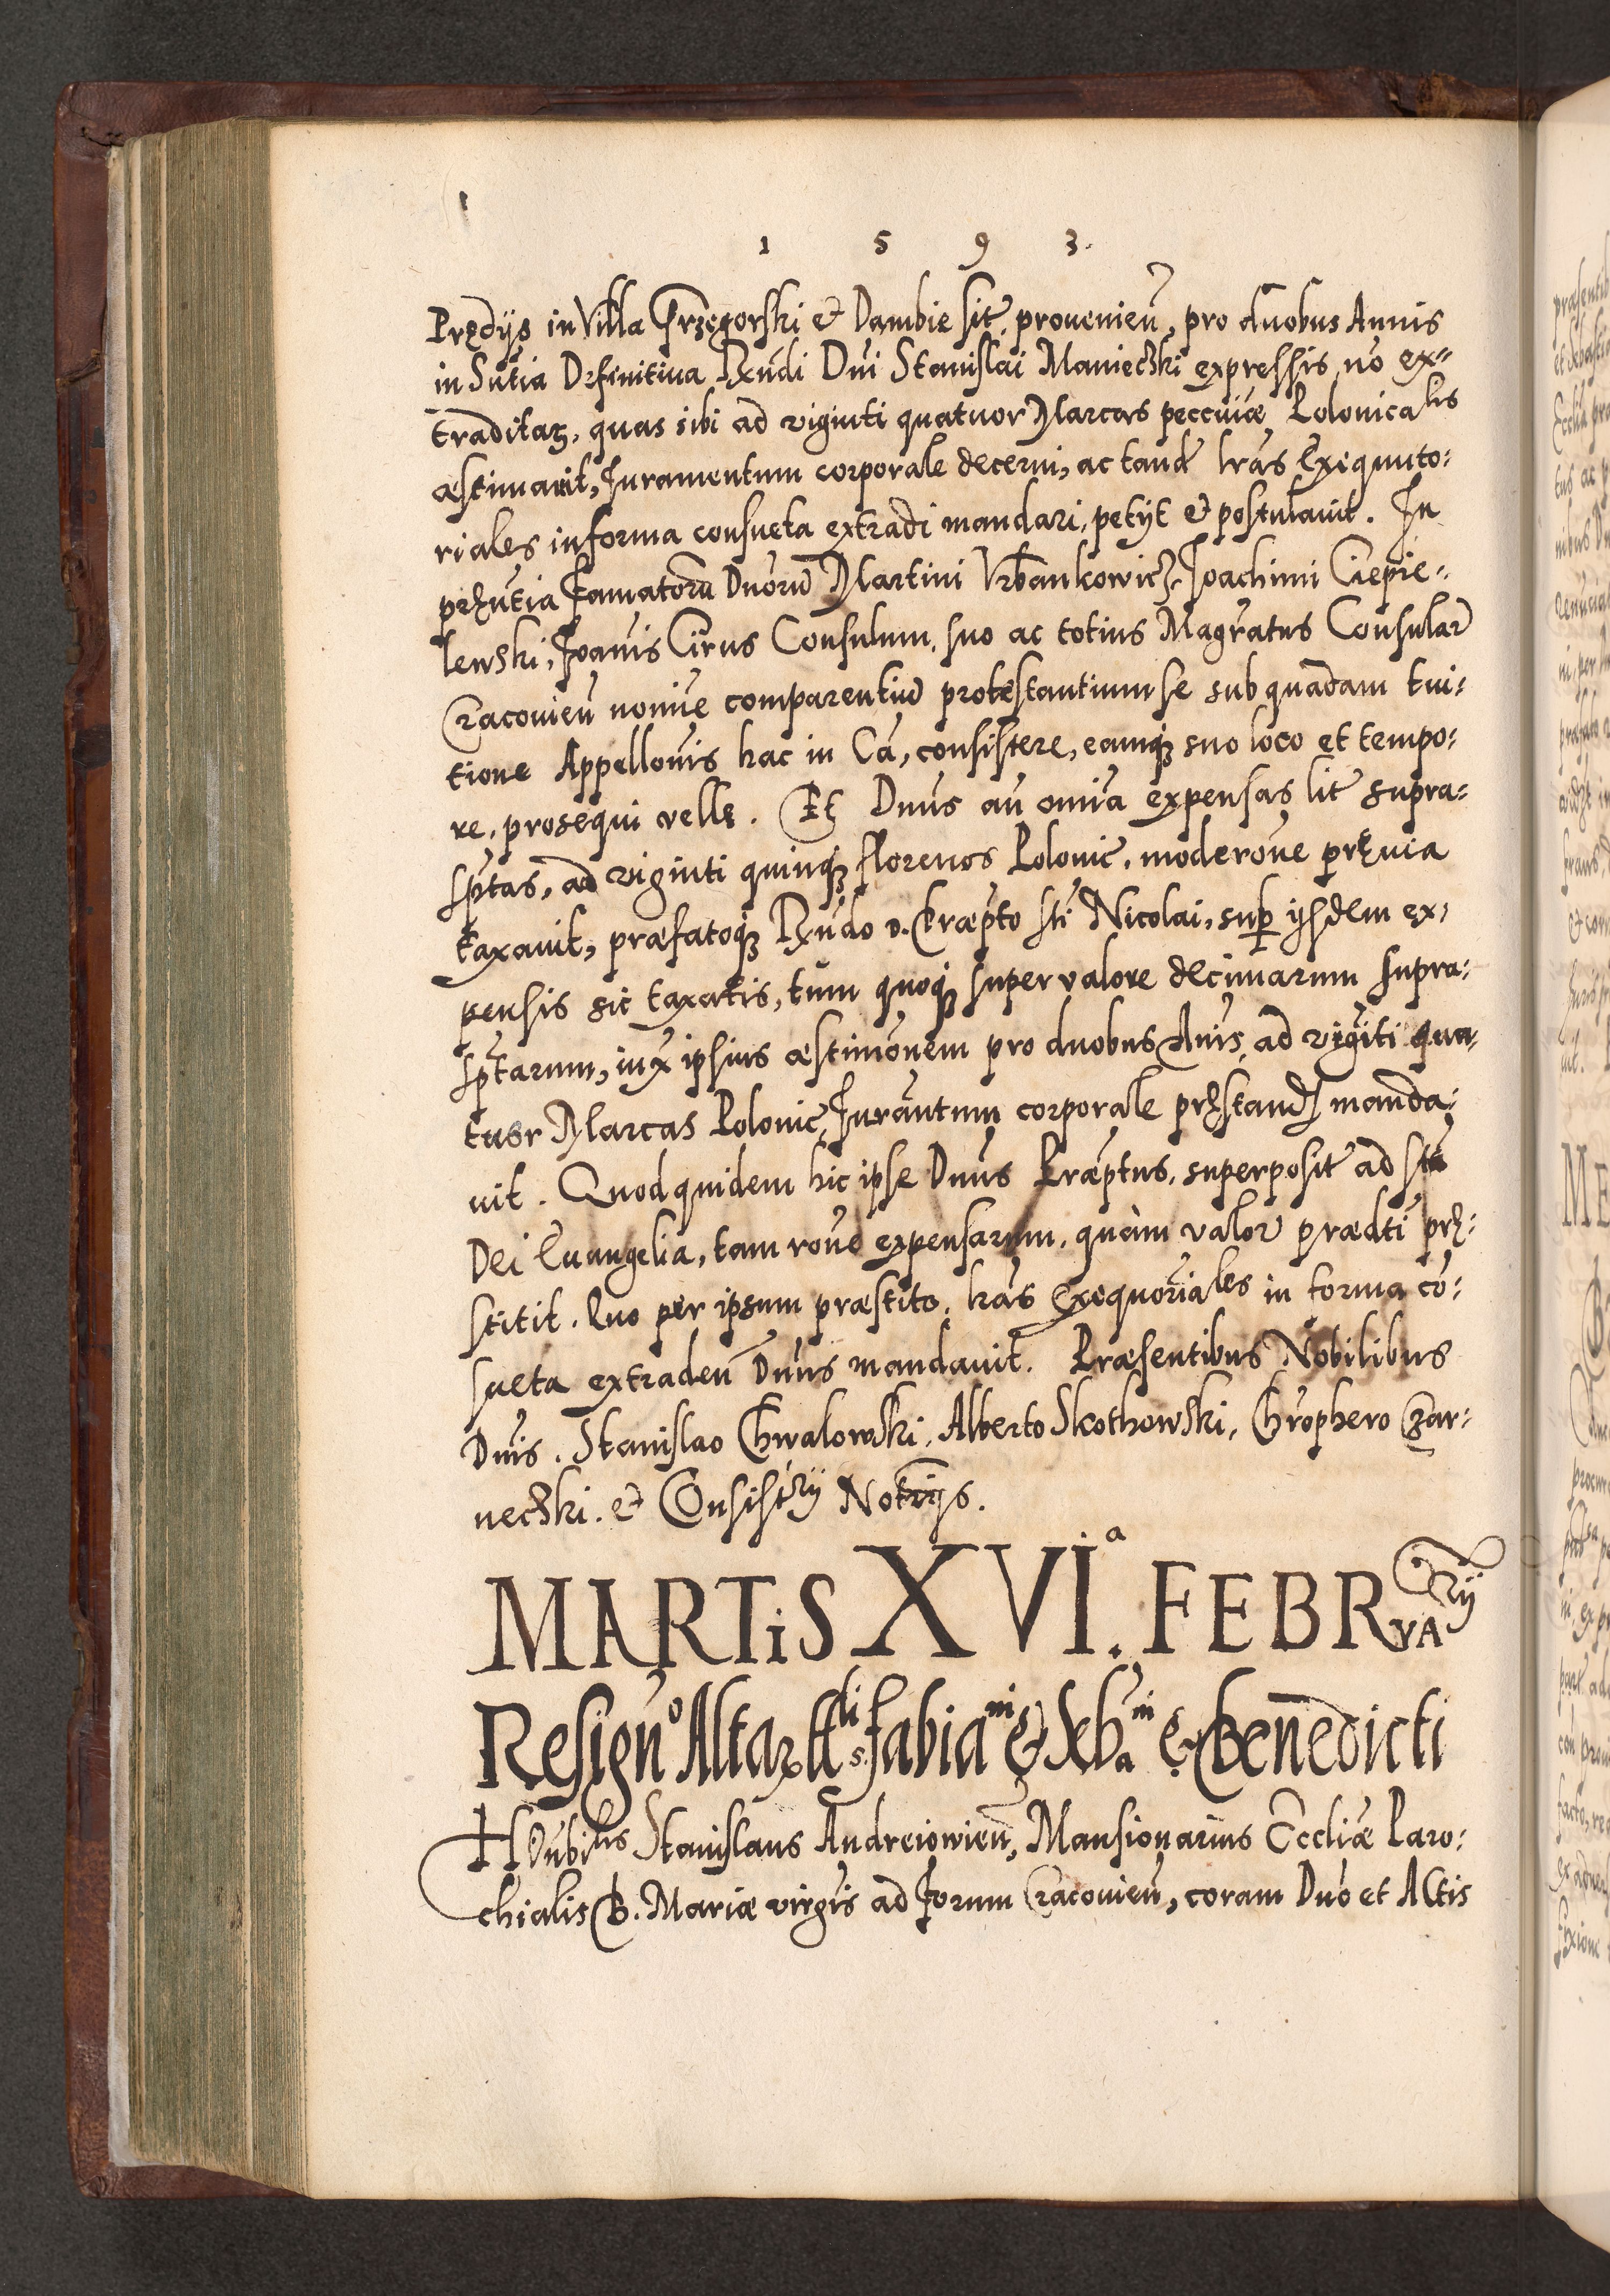 1 5 9 3.
Prędijs in Villa Grzegorski et Dambie sit̃, prouenieñ, pro duobus Annis
in Sñtia Definitiua Rñdi Dñi Stanislai Manieczki expressis nõ ex-
traditas, quas sibi ad viginti quatuor Marcas peccuniæ Polonicalis
æstimauit, Iuramentum corporale decerni, ac tandẽ lr̃as Exequuto-
riales in forma consueta extradi mandari, petijt et postulauit. In
pręñtia Famatorũ Dnõrũ Martini Vrbankowicz, Ioachimi Ciepie-
lewski, Ioañis Cirus Consulum, suo ac totius Magr̃atus Consular̃
Cracouieñ nomiñe comparentiũ protestantium se sub quadam tui-
tione Appelloñis hac in Cã, consistere, eamq; suo loco et tempo-
re, prosequi velle. Et Dñus añ omñia expensas lit̃ supra-
sp̃tas, ad viginti quinq; florenos Polonic̃, moderoñe pręuia
taxauit, præfatoq; Rñdo D. Præp̃to Sti Nicolai, sup̱ ijsdem ex-
pensis sic taxatis, tum quoq; super valore decimarum supra-
sp̃tarum, iux̃ ipsius æstimoñem pro duobus Añis, ad vigĩti qua-
tuor Marcas Polonic̃, Iurañtum corporale pręstand̃ manda-
uit. Quod quidem hic ipse Dñus Præp̃tus, superposit̃ ad Sta
Dei Euangelia, tam roñe expensarum, quàm valor̃ prædti prę-
stitit. Quo per ipsum præstito, lr̃as Exequoriales in forma cõ-
sueta extradeñ Dñus mandauit. Præsentibus Nobilibus
Dñis. Stanislao Chwalowski, Alberto Skothowski, Chrõphero Czar-
neczki. et Consistr̃ij Notrijs.
MARTiS XVIª. FEBRVArij
Resignº Altar̃ SS. Fabiani et Seb̃ani et Benedicti
HOñbilis Stanislaus Andreiowień, Mansionarius Eccliæ Paro-
chialis B. Mariæ virgĩs ad Forum Cracouieñ, coram Dñõ et Actis